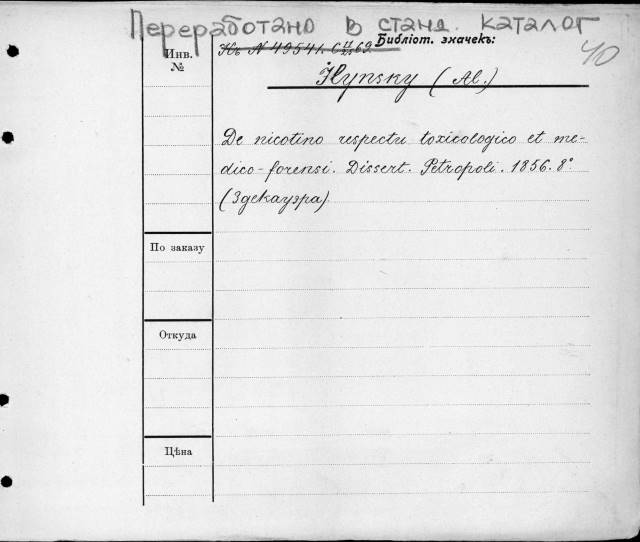 Переработано в станд. каталог
Къ N 49541. С 11/25 69. Библіот. значекъ:
40
Инв.
№
Ilynsky (Al.)
De nicotino respectu toxicologico et me-
dico-forensi. Dissert. Petropoli. 1856. 8°
(Здекауэра)
По заказу
Откуда
Цѣна